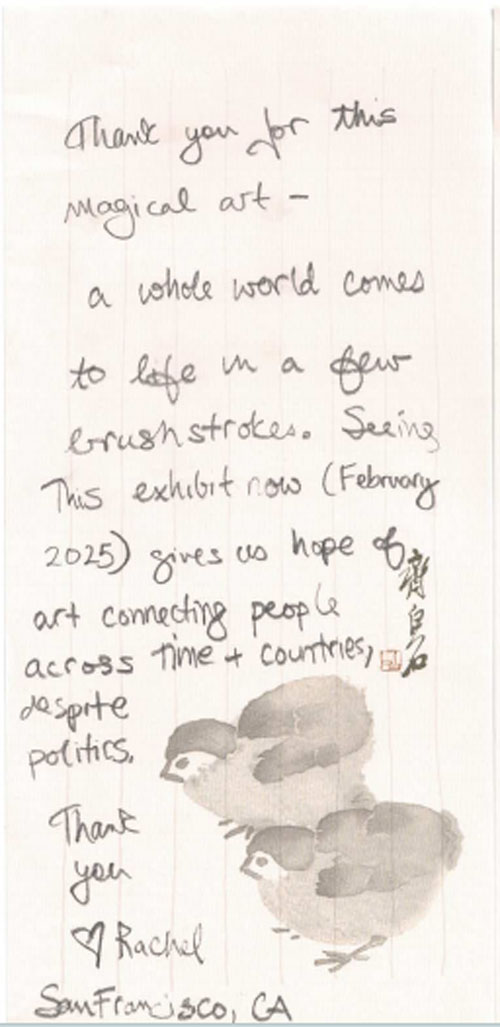 Thank you for this
magical art –
a whole world comes
to life in a few
brushstrokes. Seeing
This exhibit now (February
2025) gives us hope of
art connecting people
across time + countries,
despite
politics.
Thank
you
♡ Rachel
San Francisco, CA
齊白石